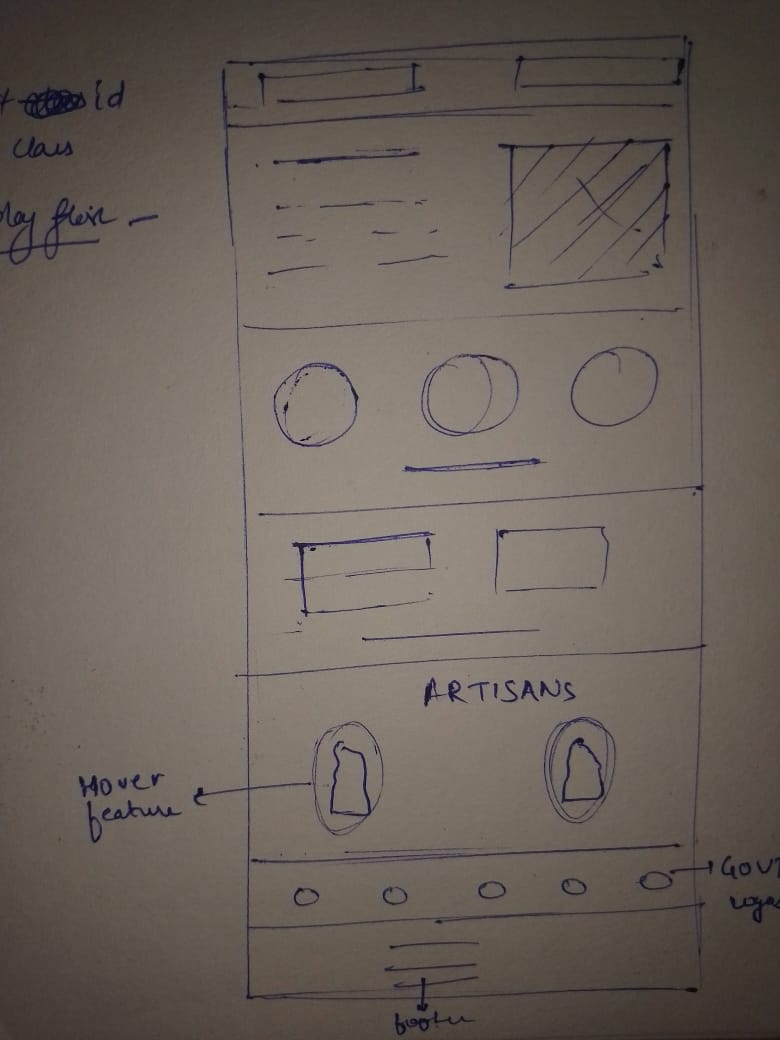 id
class
ARTISANS
Hover
feature
GOVT
logos
footer